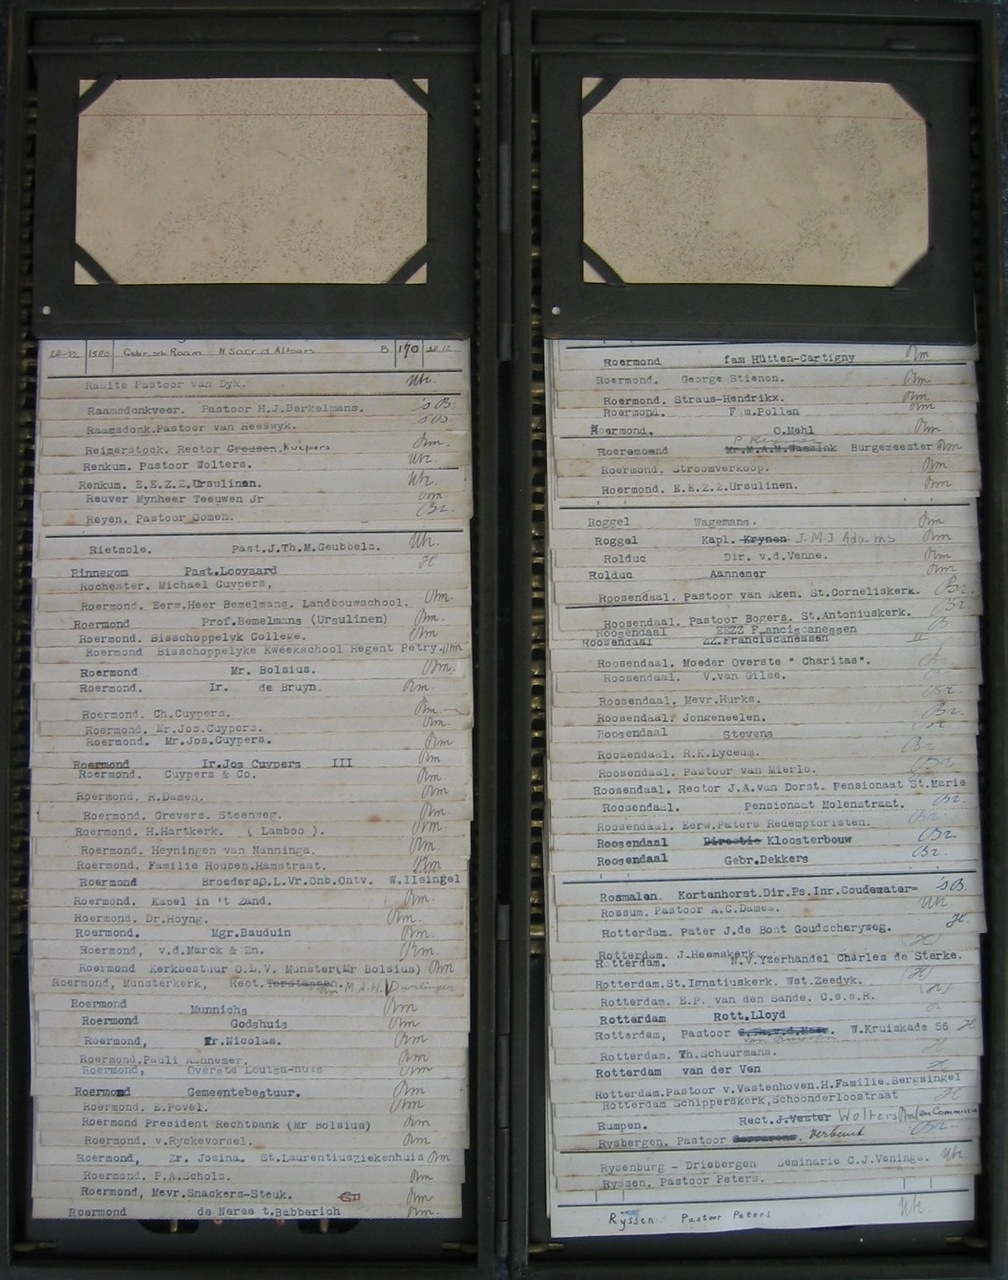 28-12 1580 Gebr. sch. Raam H Sacr d Altaars B 170 28.12
Raalte Pastoor van Dyk. Utr.
Raamsdonkveer. Pastoor H.J.Berkelmans. 's B.
Raamsdonk.Pastoor van Heeswyk. 's B.
Reimerstock. Rector Kuipers Rm.
Renkum. Pastoor Wolters. Utr.
Renkum. E.E.Z.Z.Ursulinen. Utr.
Reuver Mynheer Teeuwen Jr Rm.
Reyen. Pastoor Oomen. Br.
Rietmole. Past.J.Th.M.Geubbels. Utr.
Rinnegom Past.Looyaard H
Rochester. Michael Cuypers,
Roermond. Eerw.Heer Bemelmans. Landbouwschool. Rm.
Roermond Prof.Bemelmans (Ursulinen) Rm
Roermond. Bisschoppelyk College. Rm
Roermond Bisschoppelyke Kweekschool Regent Petry. Rm
Roermond Mr. Bolsius. Rm.
Roermond. Ir. de Bruyn. Rm.
Roermond. Ch.Cuypers. Rm.
Roermond. Mr.Jos.Cuypers. Rm.
Roermond. Mr.Jos.Cuypers. Rm
Roermond Ir.Jos Cuypers III Rm
Roermond. Cuypers & Co. Rm.
Roermond. R.Damen. Rm
Roermond. Grevers. Steenweg. Rm
Roermond. H.Hartkerk. ( Lamboo ). Rm.
Roermond. Heyningen van Nanninga. Rm.
Roermond. Familie Houben.Hamstraat. Rm
Roermond BroedersO.L.Vr.Onb.Ontv. W.IIsingel
Roermond. Kapel in 't Zand. Rm.
Roermond. Dr.Hoyng. Rm.
Roermond. Mgr.Bauduin Rm
Roermond, v.d.Marck & Zn. Rm.
Roermond Kerkbestuur O.L.V. Munster(Mr Bolsius) Rm
Roermond, Munsterkerk, Rect. M.A.H. Durlinger
Roermond Munnichs Rm
Roermond Godshuis Rm
Roermond, Fr.Nicolas. Rm.
Roermond.Pauli Aannemer. Rm
Roermond, Overste Louisa-huis Rm
Roermond Gemeentebestuur. Rm
Roermond. E.Povel. Rm
Roermond President Rechtbank (Mr Bolsius) Rm
Roermond. v.Ryckevorsel. Rm.
Roermond, Zr. Josina. St.Laurentiusziekenhuis Rm
Roermond. P.A.Schols. Rm
Roermond, Mevr.Snackers-Steuk. Rm
Roermond de Neree t.Babberich Rm.
Roermond fam Hütten-Cartigny Rm
Roermond. George Stienon. Rm
Roermond. Straus-Hendrikx. Rm
Roermond. F m.Pollen Rm
Roermond. O.Mehl Rm
Roeremoand Mr.M.A.M.Waszink Burgemeester Rm
Roermond. Stroomverkoop. Rm
Roermond. E.E.Z.Z.Ursulinen. Rm
Roggel Wagemans. Rm
Roggel Kapl. Krynen J.M.J Adams Rm
Rolduc Dir. v.d.Venne. Rm
Rolduc Aannemer Rm
Roosendaal. Pastoor van Aken. St.Corneliskerk. Br.
Roosendaal. Pastoor Bogers. St.Antoniuskerk. Br.
Roosendaal EEZZ Franciscanessen
Roosendaal ZZ.Franciscanessen
Roosendaal. Moeder Overste " Charitas". Br.
Roosendaal. V.van Gilse. Br.
Roosendaal. Mevr.Hurks. Br.
Roosendaal. Jongeneelen. Br.
Roosendaal Stevens Br
Roozendaal. R.K.Lyceum. Br.
Roosendaal. Pastoor van Mierlo. Br.
Roosendaal. Rector J.A.van Dorst. Pensionaat St.Marie
Roosendaal. Pensionaat Molenstraat. Br.
Roosendaal. Eerw.Paters Redemptoristen. Br.
Roosendaal Directie Kloosterbouw Br.
Roosendaal Gebr.Dekkers Br.
Rosmalen. Kortenhorst.Dir.Ps.Inr.Coudewater= 's B.
Rossum. Pastoor A.C.Dames. Utr
Rotterdam. Pater J.de Bont Goudscheryweg. H.
Rotterdam. J.Heemskerk H
Rotterdam. N.V.Yzerhandel Charles de Sterke.
Rotterdam.St.Ignatiuskerk. Wst.Zeedyk. (H)
Rotterdam. E.P. van den Sande. C.s.s.R. (H)
Rotterdam Rott.Lloyd H
Rotterdam, Pastoor W.Kruiskade 56 H
Rotterdam. Th.Schuurmans. H
Rotterdam van der Ven H
Rotterdam.Pastoor v.Vastenhoven.H.Familie.Bergsingel
Rotterdam Schipperskerk,Schoonderloostraat H
Rumpen. Rect.J.Vester Wolters Rm
Rysbergen. Pastoor Verbeuch Br.
Rysenburg - Driebergen Seminarie C.J.Venings. Utr
Ryssen. Pastoor Peters.
Ryssen. Pastoor Peters Utr.